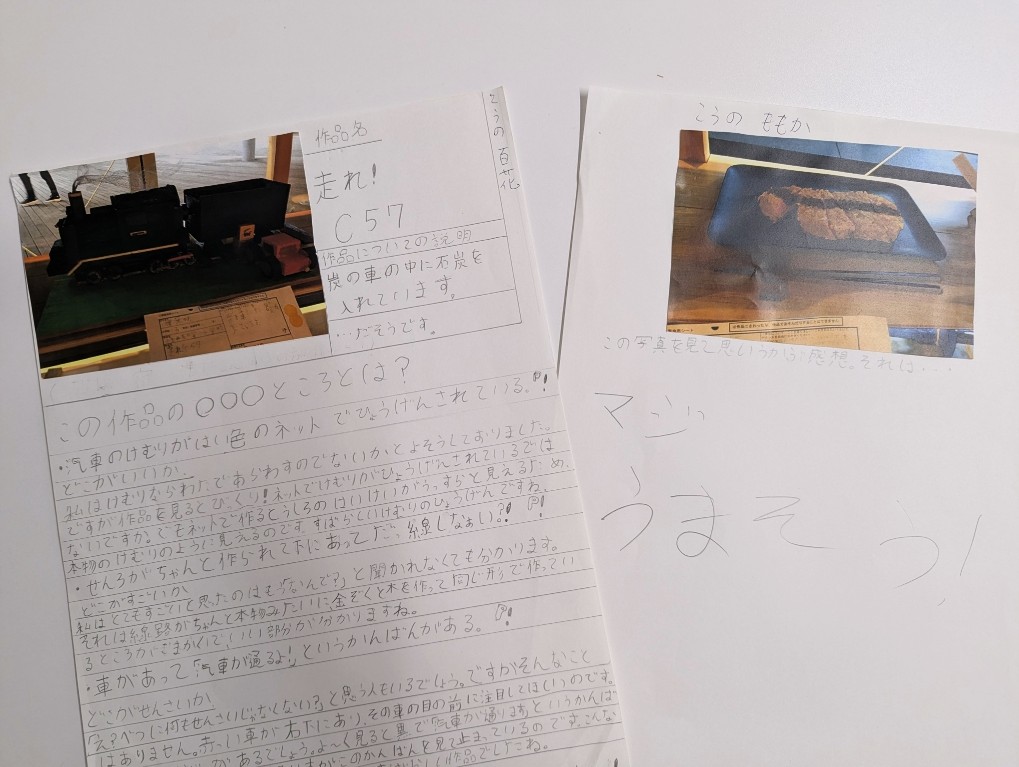 こうの 百花
作品名
走れ!
C57
作品についての説明
炭の車の中に石炭を
入れています。
…だそうです。
この作品の〇〇〇ところとは?
・汽車のけむりがはい色のネットでひょうげんされている。!
どこがいいか
私はけむりならわたであらわすのでないかとよそうしておりました。
ですが作品を見るとびっくり!ネットでけむりがひょうげんされているでは
ないですか。でもネットで作るとうしろのはいけいがうっすらと見えるため、
本物のけむりのように見えるのです。すばらしいけむりのひょうげんですね。
・せんろがちゃんと作られて下にあってだ、線しなぁい?!
どこがすごいか
私はとてもすごいと思ったのはも「なんで?」と聞かれなくても分かります。
それは線路がちゃんと本物みたいに金ぞくと木を作って同じ形で作ってい
るところがこまかくていい部分が分かりますね。
・車があって「汽車が通るよ!」というかんばんがある。!
どこがせんさいか
「え?べつに何もせんさいじゃなくない?」と思う人もいるでしょう。ですがそんなこと
はありません。赤い車が右下にあり、その車の目の前に注目してほしいのです。
があるでしょう。よ〜く見ると奥で「汽車が通ります」というかんば
がこのかんばんを見て止まっているのです。こんな
作品でしたね。
こうの ももか
この写真を見て思いうかぶ感想。それは…
マジッ
うまそう!